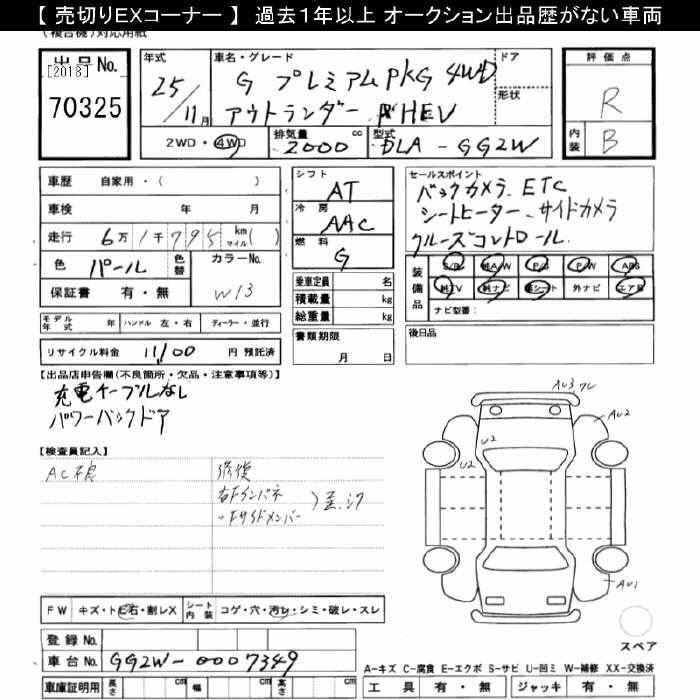 【 売切りEXコーナー 】 過去1年以上 オークション出品歴がない車両
(複合機)対応用紙
出品No.
[2018]
70325
年式
25/11月
車名・グレード
G プレミアムPKG 4WD
アウトランダー PHEV
ドア
形状
2WD・4WD
排気量 2000 cc
型式 DLA-GG2W
評価点
R
内装 B
車歴 自家用・( )
車検 年 月
走行 6万1千795 km マイル( )
色 パール 色替
カラーNo.
W13
保証書 有・無
モデル年式 年 ハンドル 左・右 ディーラー・並行
リサイクル料金 11100 円 預託済
シフト
AT
冷房
AAC
燃料
G
乗車定員 名
積載量 kg
総重量 kg
書類期限
月 日
セールスポイント
バックカメラ、ETC
シートヒーター、サイドカメラ
クルーズコントロール
装備品
S/R 純A/W P/S P/W ABS
純TV 純ナビ 革シート 外ナビ エアB
ナビ型番:
後日品
【出品店申告欄(不良箇所・欠品・注意事項等)】
充電ケーブルなし
パワーバックドア
【検査員記入】
AC不良
修復
右Fインパネ
〃FサイドメンバーJ
AU3 ワレ
AU2
U2
U2
AU1
FW キズ・トビ石・割レX
シート内装 コゲ・穴・汚レ・シミ・破レ・スレ
登録No.
車台No. GG2W-0007349
車庫証明用 長さ cm 幅 cm 高さ cm
スペア
A-キズ C-腐食 E-エクボ S-サビ U-凹ミ W-補修 XX-交換済
工具 有・無 ジャッキ 有・無